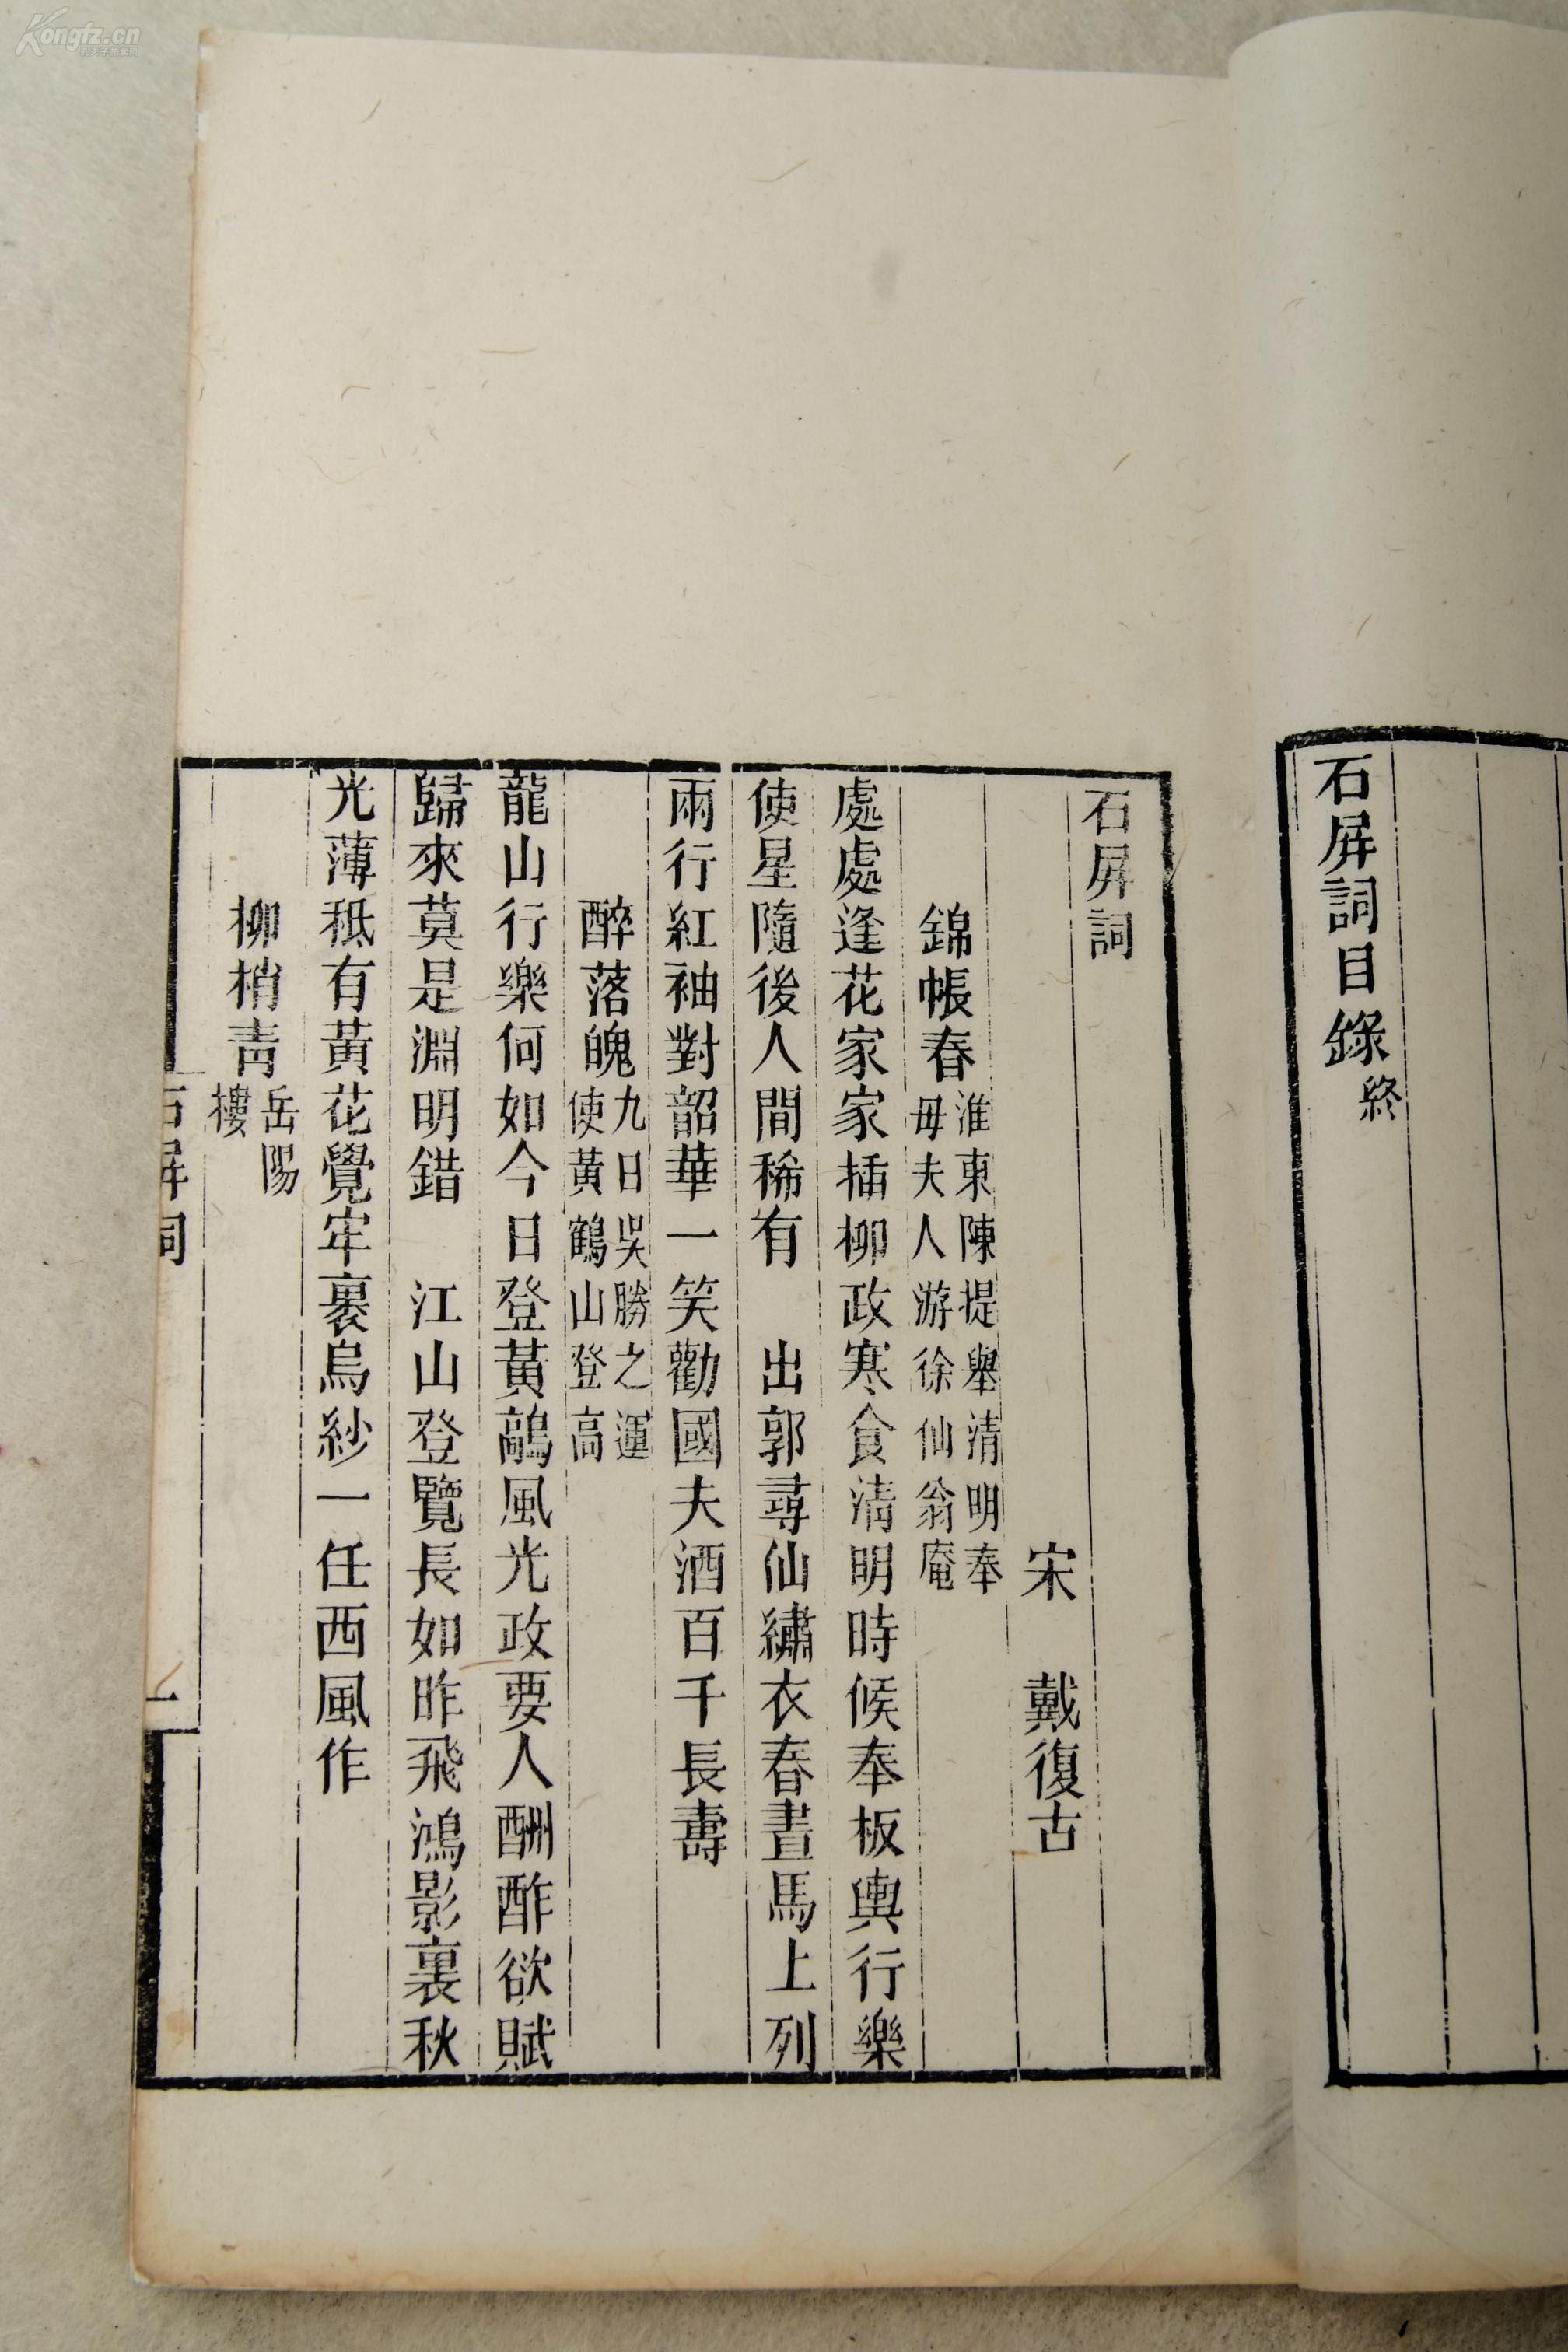 石屏詞目錄終
石屏詞
宋 戴復古
錦帳春淮東陳提舉清明奉母夫人游徐仙翁庵
處處逢花家家插柳政寒食清明時候奉板輿行樂
使星隨後人間稀有 出郭尋仙繡衣春晝馬上列
兩行紅袖對韶華一笑勸國夫酒百千長壽
醉落魄九日吳勝之運使黃鶴山登高
龍山行樂何如今日登黃鶮風光政要人酬酢欲賦
歸來莫是淵明錯 江山登覽長如昨飛鴻影裏秋
光薄秖有黃花覺牢裹烏紗一任西風作
柳梢青岳陽樓
石屏詞
一
Kongfz.cn